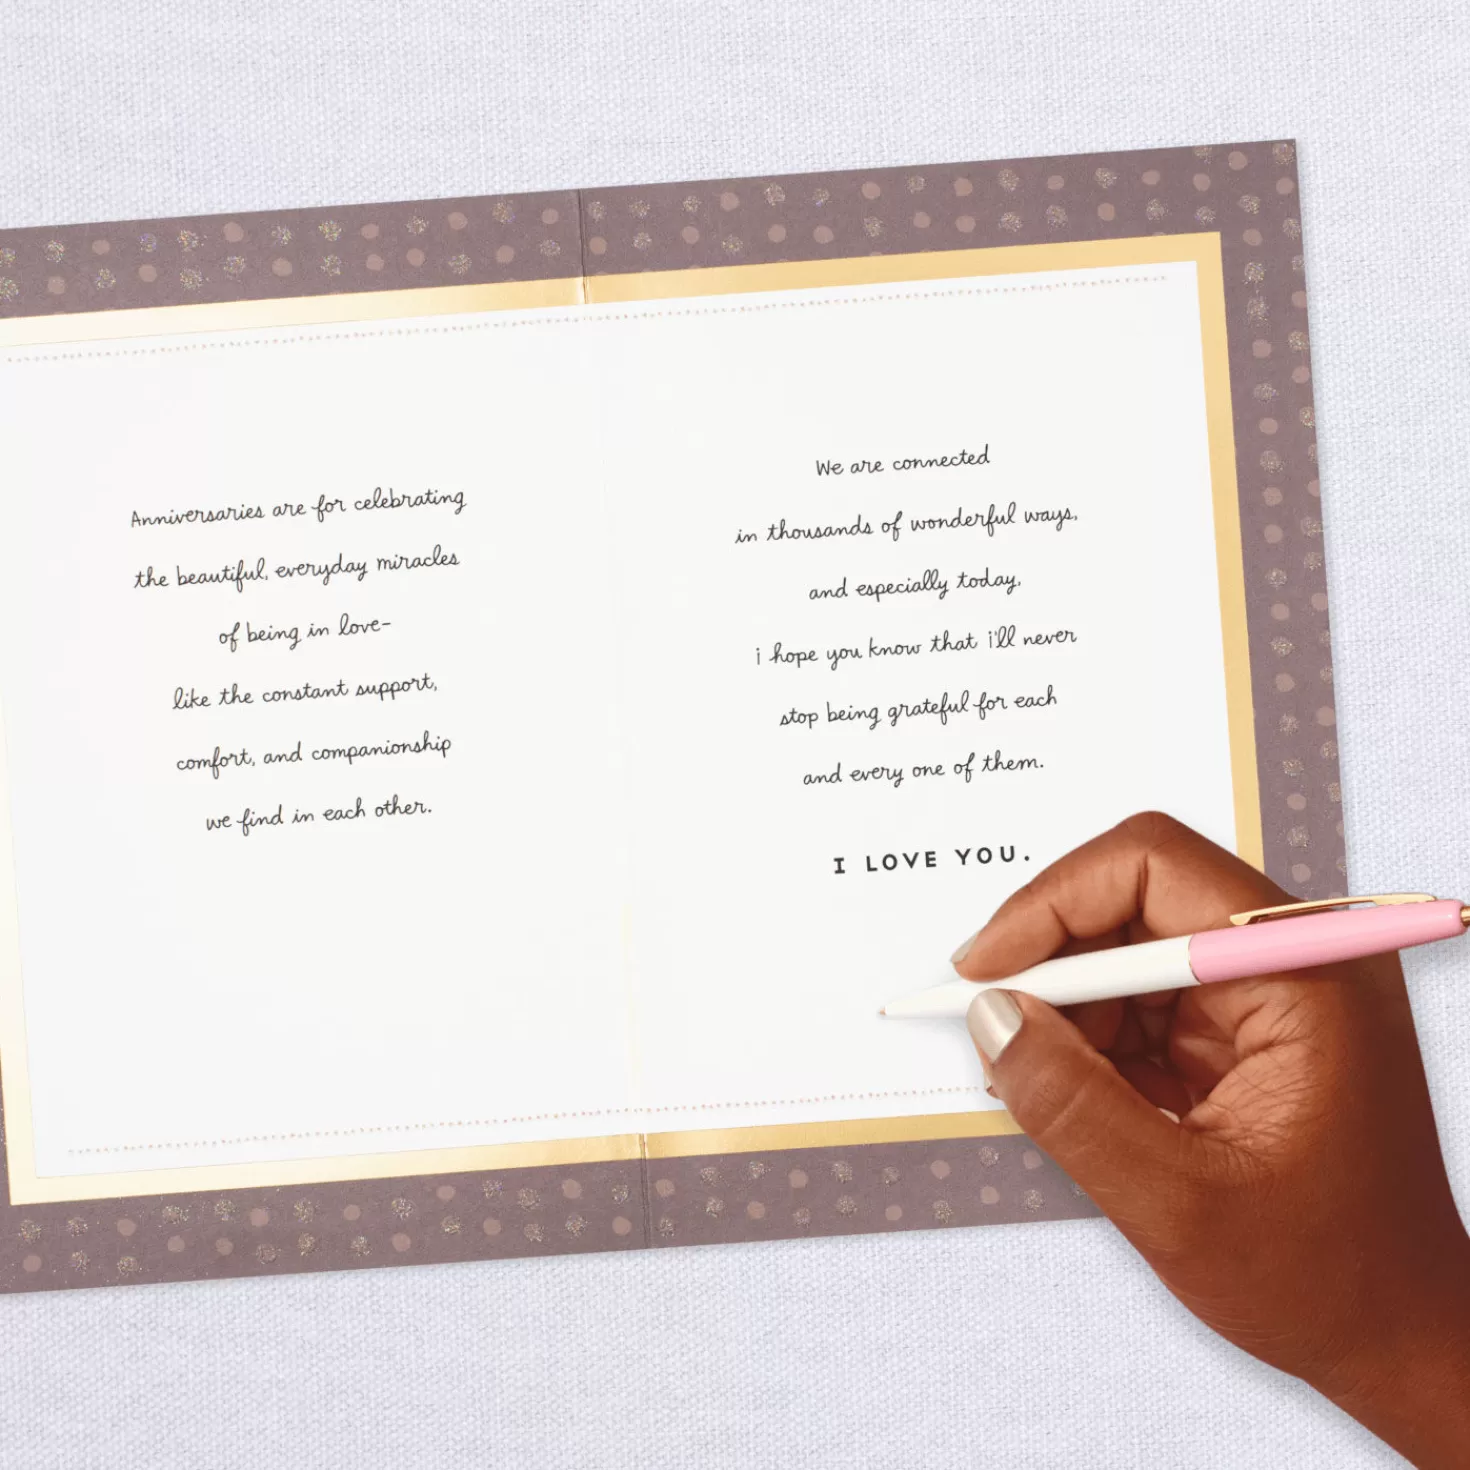 Anniversaries are for celebrating
the beautiful, everyday miracles
of being in love-
like the constant support,
comfort, and companionship
we find in each other.
We are connected
in thousands of wonderful ways,
and especially today,
i hope you know that i'll never
stop being grateful for each
and every one of them.
I LOVE YOU.